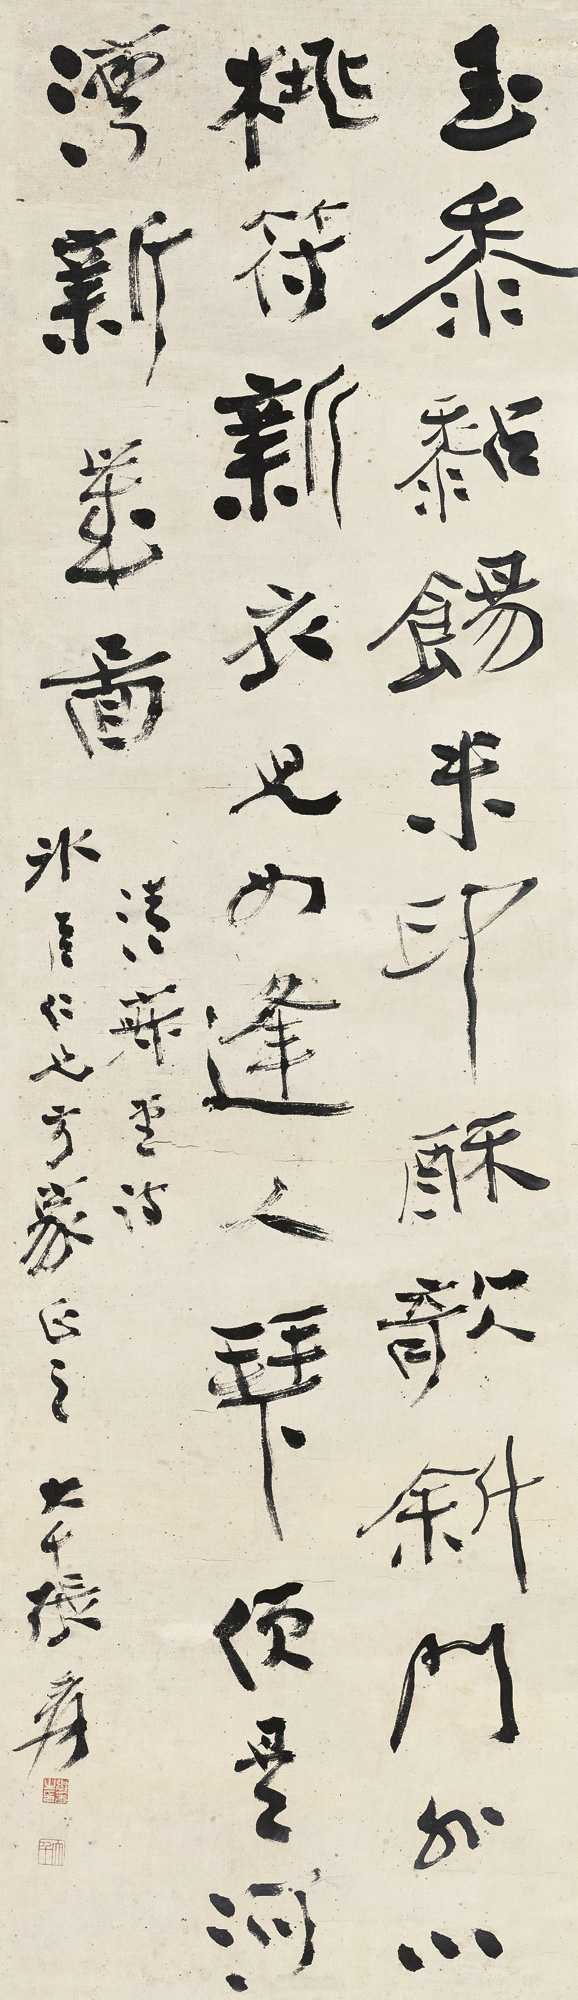 玉黍黏餳米印酥歆斜門外小
桃符新衣兒女逢人拜便是河
灣新歲圖
清寐堂詩
冰
仁兄方家正之
大千張爰